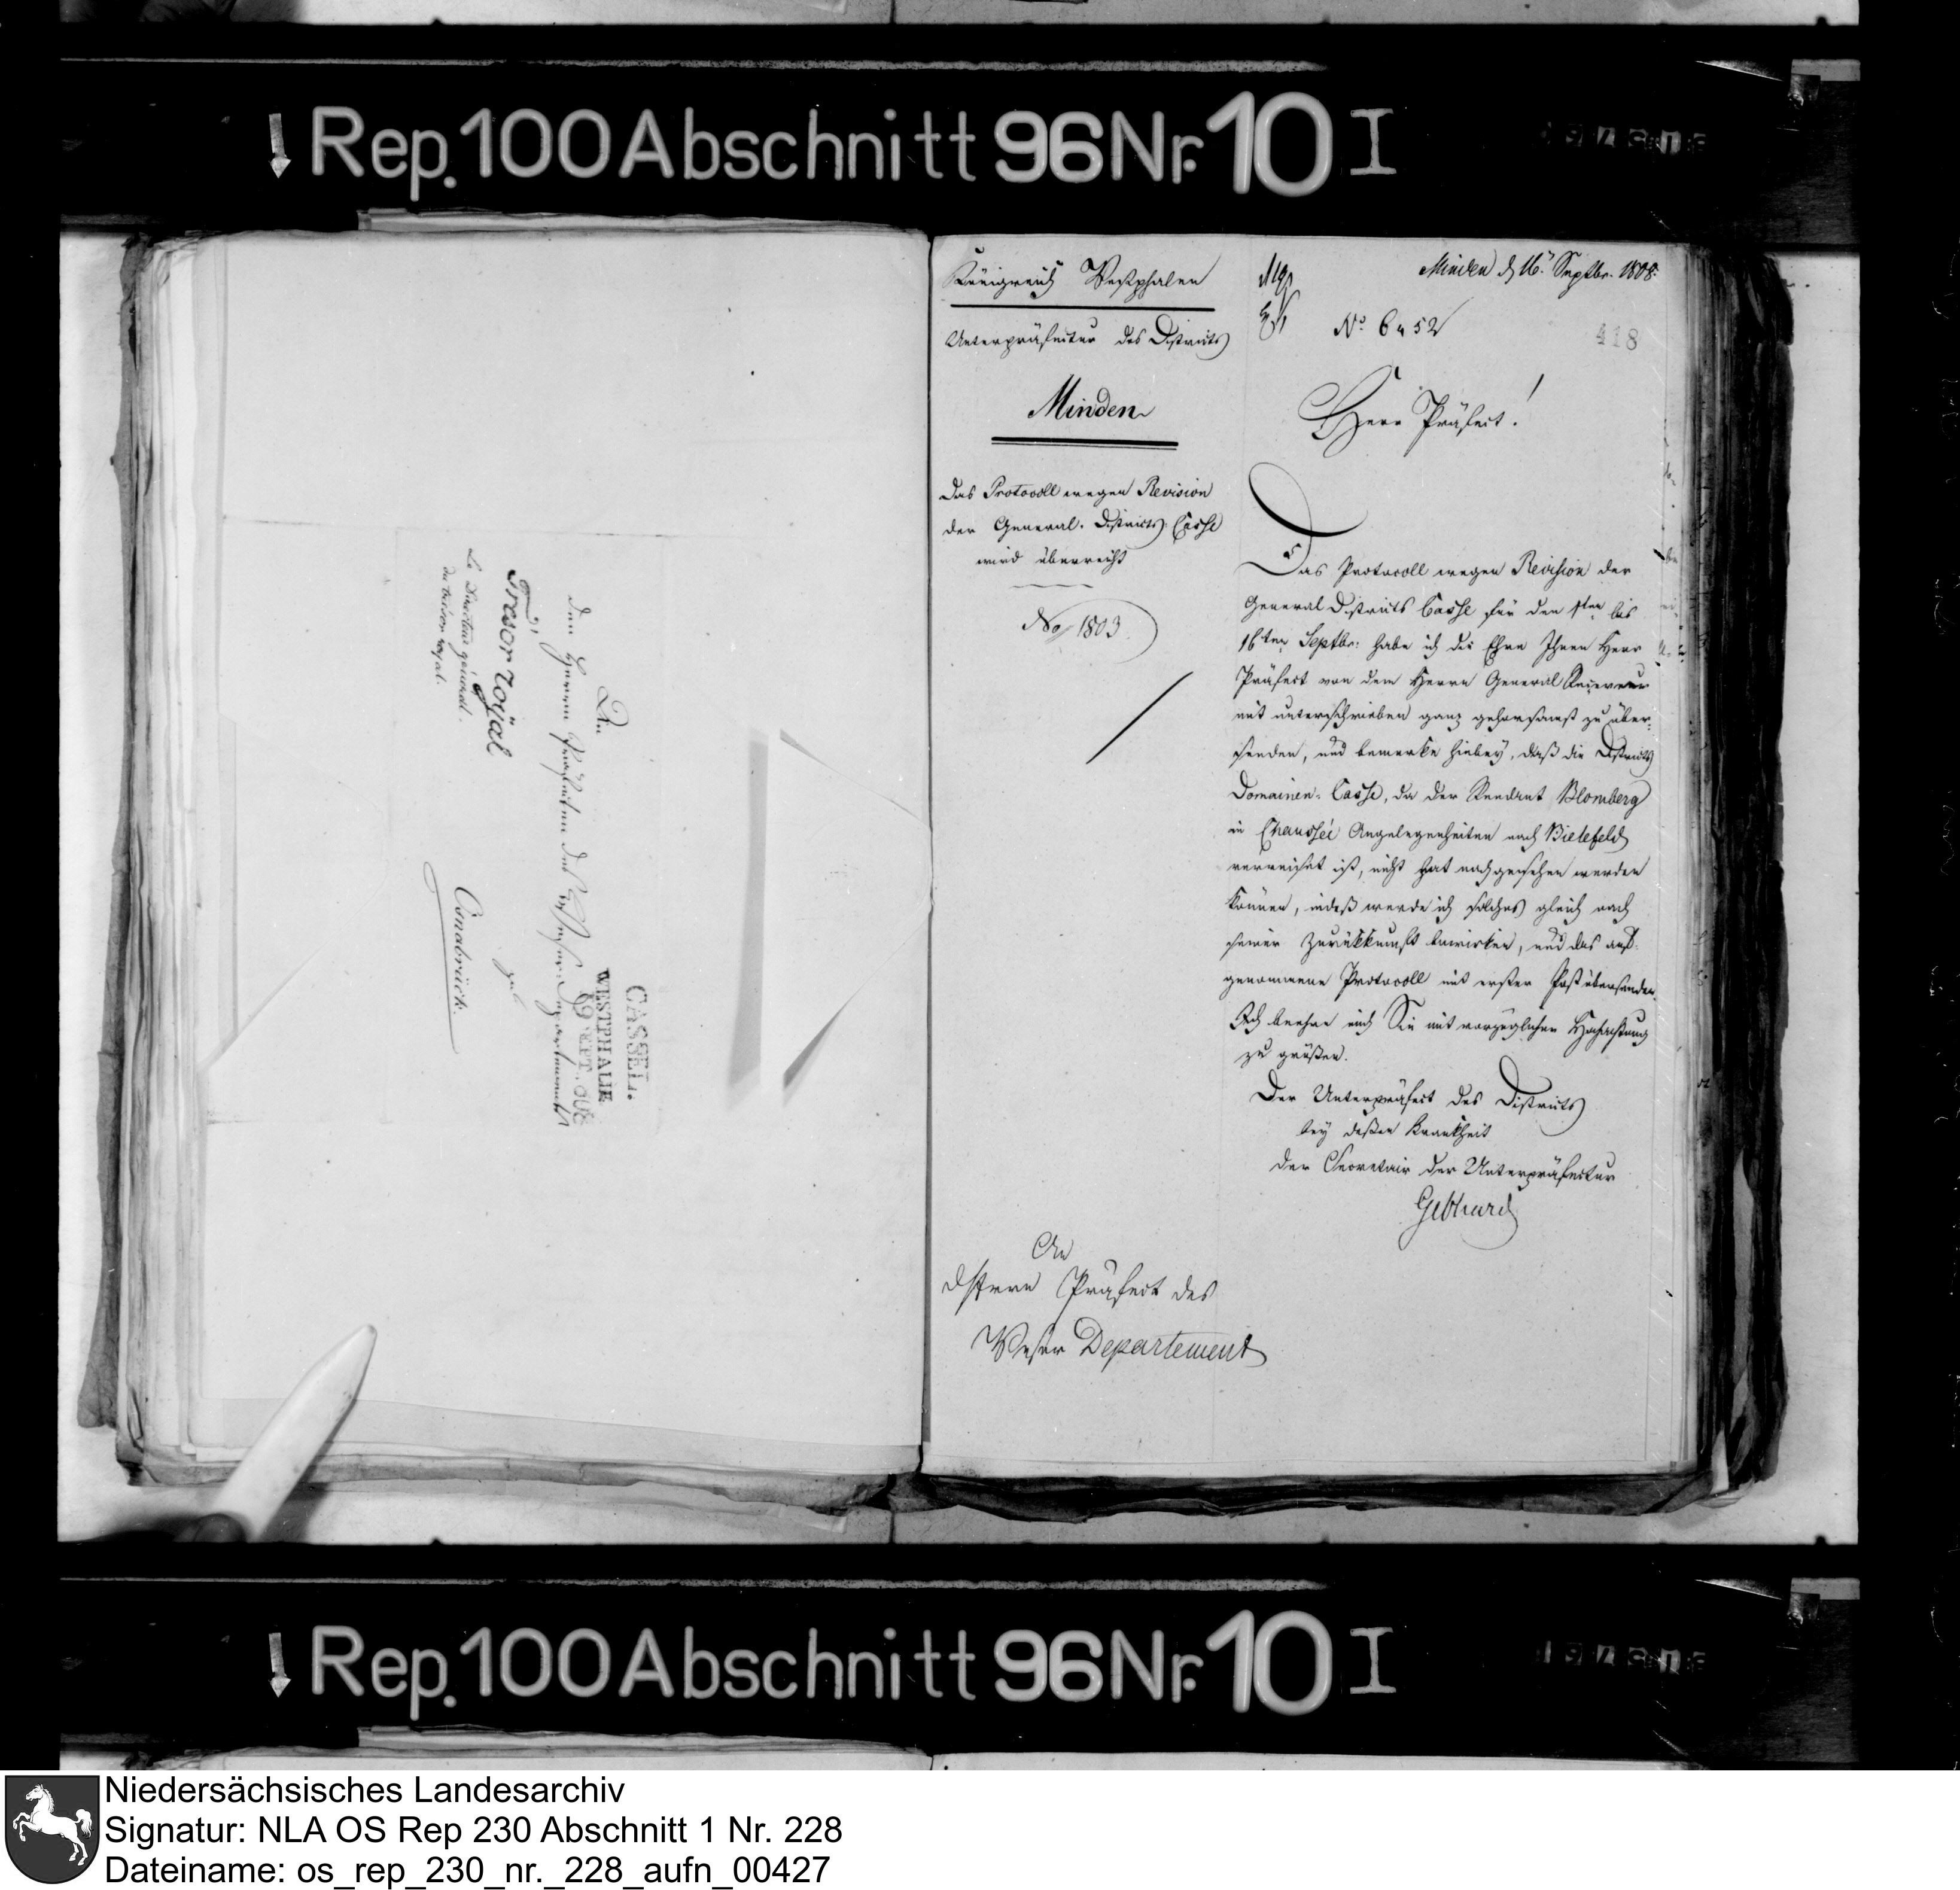 Rep. 100 Abschnitt 96 Nr. 10 I
An
den Herrn Präfecten des Weser-Departements
zu
Osnabrück.
Trésor royal
Le Directeur général
du trésor royal.
CASSEL.
WESTPHALIE
Königreich Westphalen
Unterpräfectur des Districts
Minden
Das Protocoll wegen Revision
der General. Districts. Casse
wird überreicht
No 1803.
An
d Herrn Präfect des
Weser Departement
Minden d 16. Septbr. 1808.
No 6452
418
Herr Präfect!
Das Protocoll wegen Revision der
General Districts Casse für den 1ten bis
16ten Septbr: habe ich die Ehre Ihnen Herr
Präfect von dem Herrn General Receveur
mit unterschrieben ganz gehorsamst zu über-
senden, und bemerke hiebey, daß die Districts
Domainen-Casse, da der Rendant Blomberg
in Chaussée Angelegenheiten nach Bielefeld
verreiset ist, nicht hat nachgesehen werden
können, indeß werde ich solches gleich nach
seiner Zurükkunft bewirken, und das auf-
genommene Protocoll mit erster Post übersenden.
Ich beehre mich Sie mit vorzüglicher Hochachtung
zu grüßen.
Der Unterpräfect des Districts
bey deßen Krankheit
der Secretair der Unterpräfectur
Gebhard
Rep. 100 Abschnitt 96 Nr. 10 I
Niedersächsisches Landesarchiv
Signatur: NLA OS Rep 230 Abschnitt 1 Nr. 228
Dateiname: os_rep_230_nr._228_aufn_00427